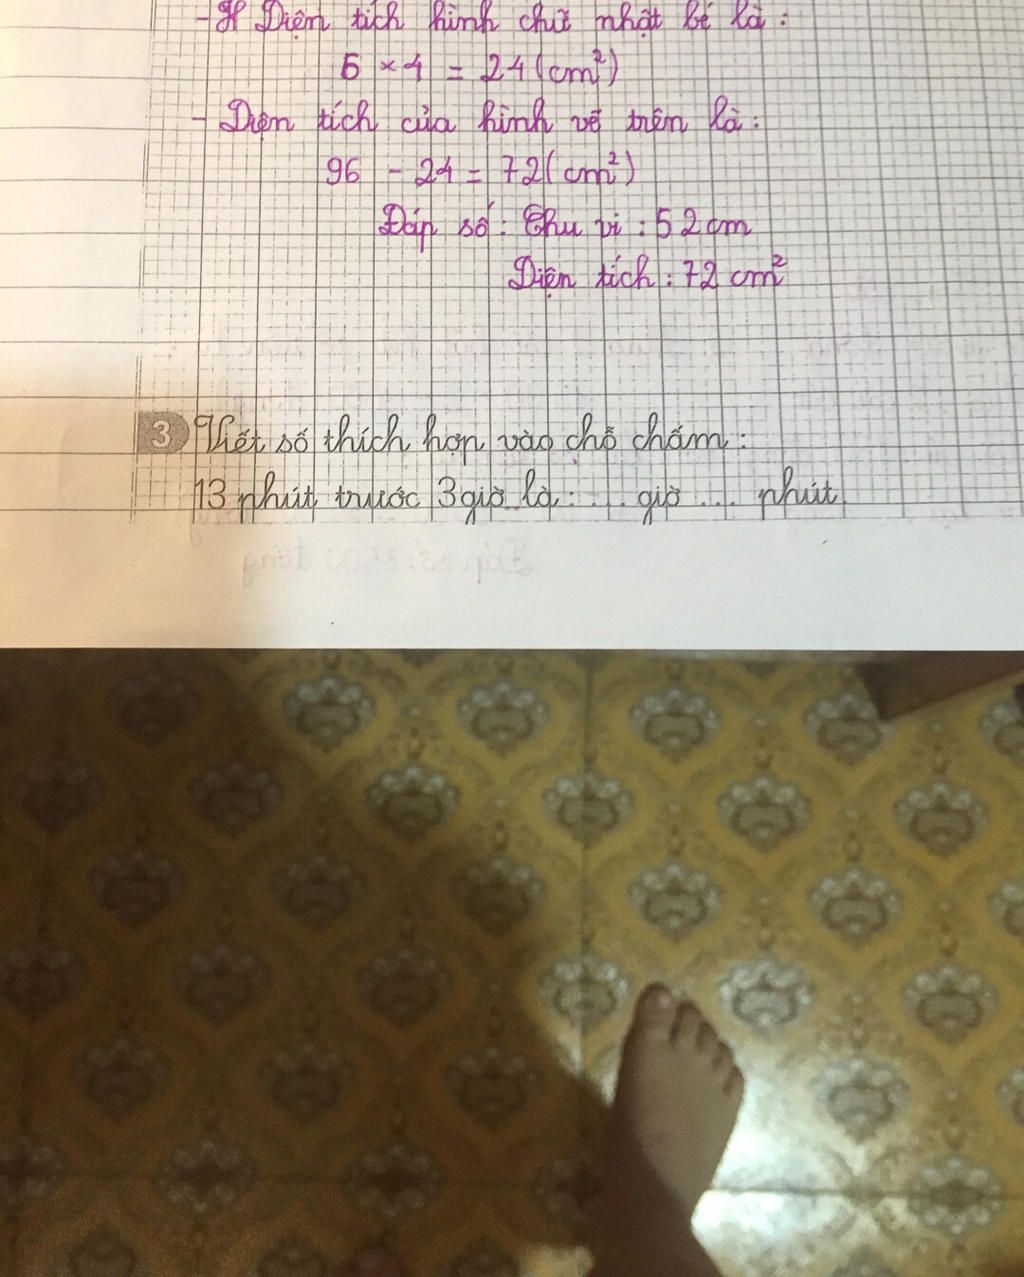 - Diện tích hình chữ nhật bé là:
6 × 4 = 24 (cm²)
- Diện tích của hình vẽ trên là:
96 - 24 = 72 (cm²)
Đáp số: Chu vi: 52 cm
Diện tích: 72 cm²
3 Viết số thích hợp vào chỗ chấm:
13 phút trước 3 giờ là .... giờ .... phút